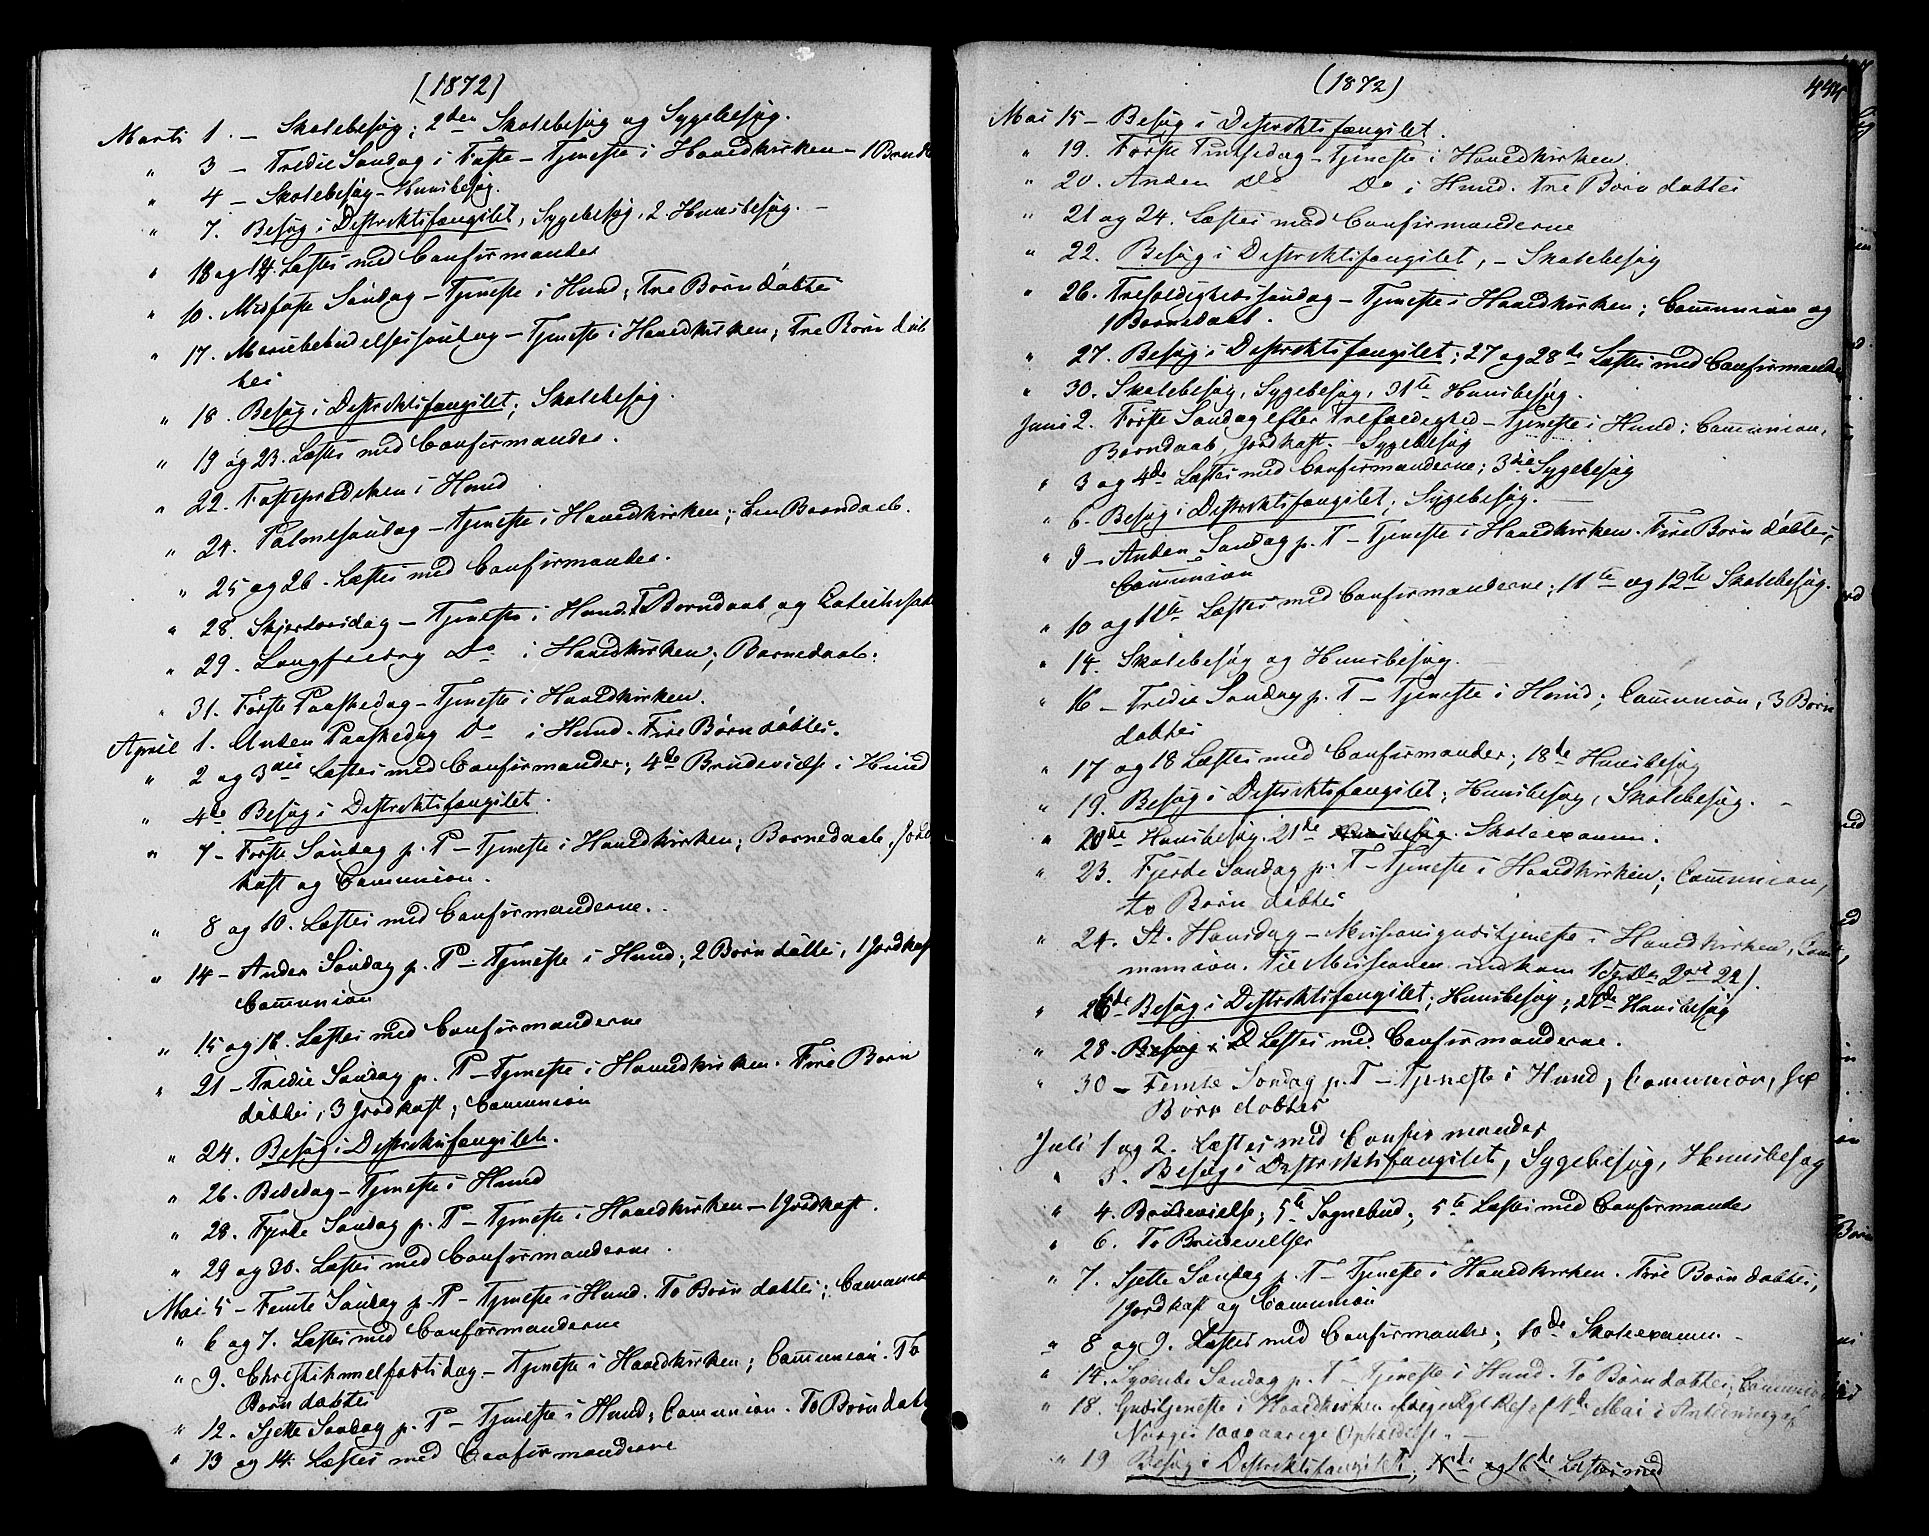 (1872)
Marts 1. – Skolebesøg; 2den Skolebesøg og Sygebesøg.
" 3 – Tredie Søndag i Faste – Tjeneste i Hovedkirken – 1 Barnd
" 4 – Skolebesøg – Huusbesøg.
" 7. Besøg i Distriktsfængslet, Sygebesøg, 2 Huusbesøg. –
" 18 og 14. Læstes med Confirmander
" 10. Midfaste Søndag – Tjeneste i Hund; Tre Børn døbtes
" 17. Mariæbebudelsessøndag – Tjeneste i Hovedkirken; Tre Børn døb
tes
" 18. Besøg i Distriktsfængslet; Skolebesøg.
" 19 og 23. Læstes med Confirmander.
" 22. Fasteprædiken i Hund
" 24. Palmesøndag – Tjeneste i Hovedkirken; Een Barndaab.
" 25 og 26. Læstes med Confirmander.
" 28. Skjertorsdag – Tjeneste i Hund. 1 Barndaab og Catechisat
" 29. Langfredag Do i Hovedkirken; Barnedaab.
" 31. Første Paaskedag – Tjeneste i Hovedkirken.
April 1. Anden Paaskedag Do i Hund. Fire Børn døbtes.
" 2 og 3die Læstes med Confirmander; 4de Brudevielse i Hund
" 4de Besøg i Distriktsfængslet.
" 7 – Første Søndag p. P – Tjeneste i Hovedkirken; Barnedaab, Jord
kast og Communion.
" 8 og 10. Læstes med Confirmanderne.
" 14 – Anden Søndag p. P – Tjeneste i Hund; 2 Børn døbtes, 1 Jordkast
Communion
" 15 og 16. Læstes med Confirmanderne
" 21 – Tredie Søndag p. P – Tjeneste i Hovedkirken. Fire Børn
døbtes; 3 Jordkast; Communion
" 24. Besøg i Distriktsfængslet.
" 26. Bededag – Tjeneste i Hund
" 28. Fjerde Søndag p. P – Tjeneste i Hovedkirken – 1 Jordkast.
" 29 og 30. Læstes med Confirmanderne.
Mai 5 – Femte Søndag p. P – Tjeneste i Hund. To Børn døbtes; Commun
" 6 og 7. Læstes med Confirmanderne
" 9. Christihimmelfartsdag – Tjeneste i Hovedkirken; Communion. To
Børn døbtes
" 12. Sjette Søndag p. P – Tjeneste i Hund; Communion. To Børn døbt
" 13 og 14. Læstes med Confirmanderne
(1872)
Mai 15 – Besøg i Distriktsfængslet.
" 19. Første Pintsedag – Tjeneste i Hovedkirken.
" 20. Anden Do Do i Hund. Tre Børn døbtes
" 21 og 24. Læstes med Confirmanderne
" 22. Besøg i Distriktsfængslet, – Skolebesøg
" 26. Trefoldighedssøndag – Tjeneste i Hovedkirken; Communion og
1 Barnedaab.
" 27. Besøg i Distriktsfængslet; 27 og 28de Læstes med Confirmander
" 30. Skolebesøg, Sygebesøg, 31te Huusbesøg.
Juni 2. Første Søndag efter Trefoldighed – Tjeneste i Hund; Communion,
Barndaab, Jordkast. – Sygebesøg
" 3 og 4de Læstes med Confirmanderne; 3die Sygebesøg
" 6. Besøg i Distriktsfængslet; Sygebesøg.
" 9 – Anden Søndag p. T – Tjeneste i Hovedkirken. Fire Børn døbtes,
Communion
" 10 og 11te Læstes med Confirmanderne; 11te og 12te Skolebesøg.
" 14. Skolebesøg og Huusbesøg.
" 16 – Tredie Søndag p. T – Tjeneste i Hund; Communion, 3 Børn
døbtes
" 17 og 18 Læstes med Confirmander; 18de Huusbesøg
" 19. Besøg i Distriktsfængslet; Huusbesøg, Skolebesøg. –
" 20de Huusbesøg. 21de Huusbesøg. Skoleexamen.
" 23. Fjerde Søndag p. T – Tjeneste i Hovedkirken; Communion,
to Børn døbtes
" 24. St. Hansdag – Missionsgudstjeneste i Hovedkirken, Com
munion. Til Missionen indkom
" 26de Besøg i Distriktsfængslet; Huusbesøg; 27de Huusbesøg
" 28. Besøg i D Læstes med Confirmanderne.
" 30 – Femte Søndag p. T – Tjeneste i Hund; Communion, sex
Børn døbtes
Juli 1 og 2. Læstes med Confirmander
" 3. Besøg i Distriktsfængslet, Sygebesøg, Huusbesøg
" 4. Brudevielse; 5te Sognebud; 5te Læstes med Confirmander
" 6. To Brudevielser
" 7. Sjette Søndag p. T – Tjeneste i Hovedkirken. Fire Børn døbtes,
1 Jordkast og Communion
" 8 og 9. Læstes med Confirmander; 10de Skoleexamen. –
" 14. Syvende Søndag p. T – Tjeneste i Hund. To Børn døbtes; Communion
" 18. Gudstjeneste i Hovedkirken ifølge Kgl Res. af 4de Mai i Anledning af
Norges 1000aarige
" 19 Besøg i Distriktsfængslet; og 16de Læstes med